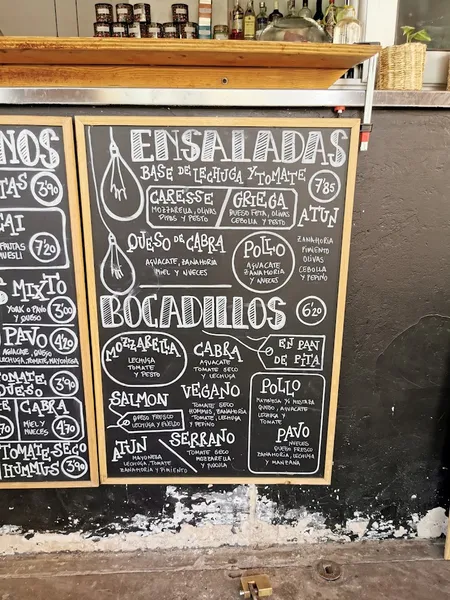 NOS
TAS 3'90
ÇAI
FRUTAS
MUESLI
7'20
MIXTO
YORK O PAVO
Y QUESO
3'00
PAVO
AGUACATE, QUESO
LECHUGA, TOMATE, MAYONESA
4'20
TOMATE
QUESO
3'90
CABRA
MIEL Y
NUECES
4'70
TOMATE-SECO
HUMMUS
3'90
ENSALADAS
BASE DE LECHUGA Y TOMATE
7'85
CARESSE
MOZZARELLA, OLIVAS
Y PESTO
GRIEGA
QUESO FETA, OLIVAS
CEBOLLA Y PESTO
ATÚN
ZANAHORIA
PIMIENTO
OLIVAS
CEBOLLA
Y PEPINO
QUESO DE CABRA
AGUACATE, ZANAHORIA
MIEL Y NUECES
POLLO
AGUACATE
ZANAHORIA
Y NUECES
BOCADILLOS
6'20
MOZZARELLA
LECHUGA
TOMATE
Y PESTO
CABRA
AGUACATE
TOMATE SECO
Y LECHUGA
EN PAN
DE PITA
SALMON
QUESO FRESCO
LECHUGA Y ENELDO
VEGANO
TOMATE SECO
HUMMUS, ZANAHORIA
TOMATE, LECHUGA
Y PEPINO
POLLO
MAYONESA Y MOSTAZA
QUESO, AGUACATE
LECHUGA Y
TOMATE
ATÚN
MAYONESA
LECHUGA, TOMATE
ZANAHORIA Y PIMIENTO
SERRANO
TOMATE SECO
MOZZARELLA
Y RUCULA
PAVO
NUECES
QUESO FRESCO
ZANAHORIA, LECHUGA
Y MANZANA